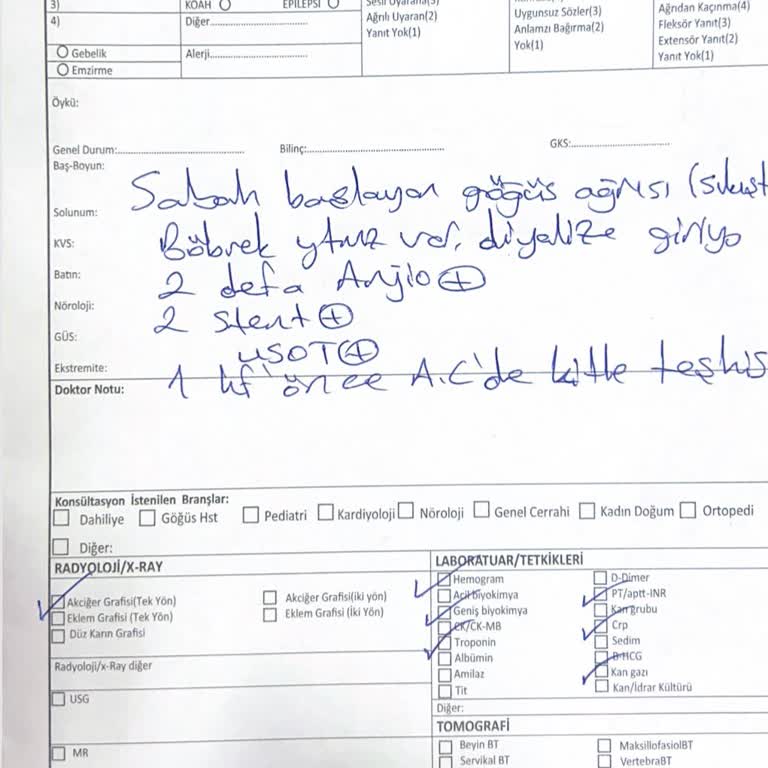 3)
KOAH
EPİLEPSİ
4)
Diğer
Ağrılı Uyaran(2)
Yanıt Yok(1)
Uygunsuz Sözler(3)
Anlamzı Bağırma(2)
Yok(1)
Ağrıdan Kaçınma(4)
Fleksör Yanıt(3)
Extensör Yanıt(2)
Yanıt Yok(1)
Gebelik
Alerji
Emzirme
Öykü:
Genel Durum: Bilinç: GKS:
Baş-Boyun:
Sabah başlayan göğüs ağrısı
Solunum:
KVS:
Böbrek ytmz var, diyalize giriyo
Batın:
2 defa Anjio +
Nöroloji:
2 stent +
GÜS:
USOT +
Ekstremite:
1 hf önce A.C'de kitle teşhis
Doktor Notu:
Konsültasyon İstenilen Branşlar:
Dahiliye Göğüs Hst Pediatri Kardiyoloji Nöroloji Genel Cerrahi Kadın Doğum Ortopedi
Diğer:
RADYOLOJİ/X-RAY
Akciğer Grafisi(Tek Yön) Akciğer Grafisi(iki yön)
Eklem Grafisi (Tek Yön) Eklem Grafisi (İki Yön)
Düz Karın Grafisi
Radyoloji/x-Ray diğer
USG
MR
LABORATUAR/TETKİKLERİ
Hemogram D-Dimer
Acil biyokimya PT/aptt-INR
Geniş biyokimya Kan grubu
CK/CK-MB Crp
Troponin Sedim
Albümin B-HCG
Amilaz Kan gazı
Tit Kan/İdrar Kültürü
Diğer:
TOMOGRAFİ
Beyin BT MaksillofasiolBT
Servikal BT VertebraBT